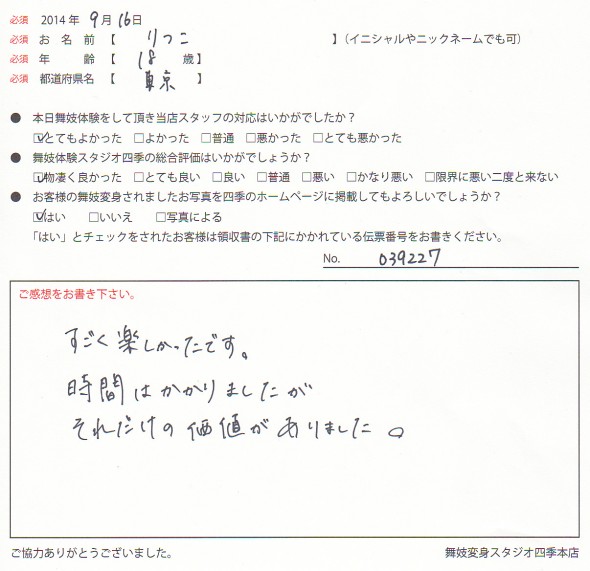 必須 2014 年 9 月 16 日
必須 お 名 前 【 りつこ 】(イニシャルやニックネームでも可)
必須 年 齢 【 18 歳】
必須 都道府県名 【 東京 】
● 本日舞妓体験をして頂き当店スタッフの対応はいかがでしたか?
☑とてもよかった □よかった □普通 □悪かった □とても悪かった
● 舞妓体験スタジオ四季の総合評価はいかがでしょうか?
☑物凄く良かった □とても良い □良い □普通 □悪い □かなり悪い □限界に悪い二度と来ない
● お客様の舞妓変身されましたお写真を四季のホームページに掲載してもよろしいでしょうか?
☑はい □いいえ □写真による
「はい」とチェックをされたお客様は領収書の下記にかかれている伝票番号をお書きください。
No. 039227
ご感想をお書き下さい。
すごく楽しかったです。
時間はかかりましたが
それだけの価値がありました。
ご協力ありがとうございました。 舞妓変身スタジオ四季本店